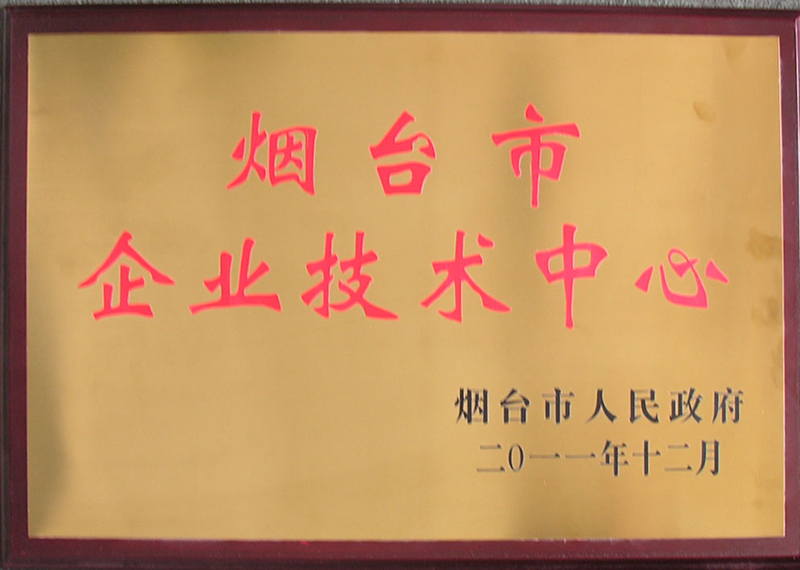 烟台市
企业技术中心
烟台市人民政府
二0一一年十二月